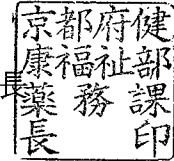 京都府健
康福祉部
薬務課
長印
長